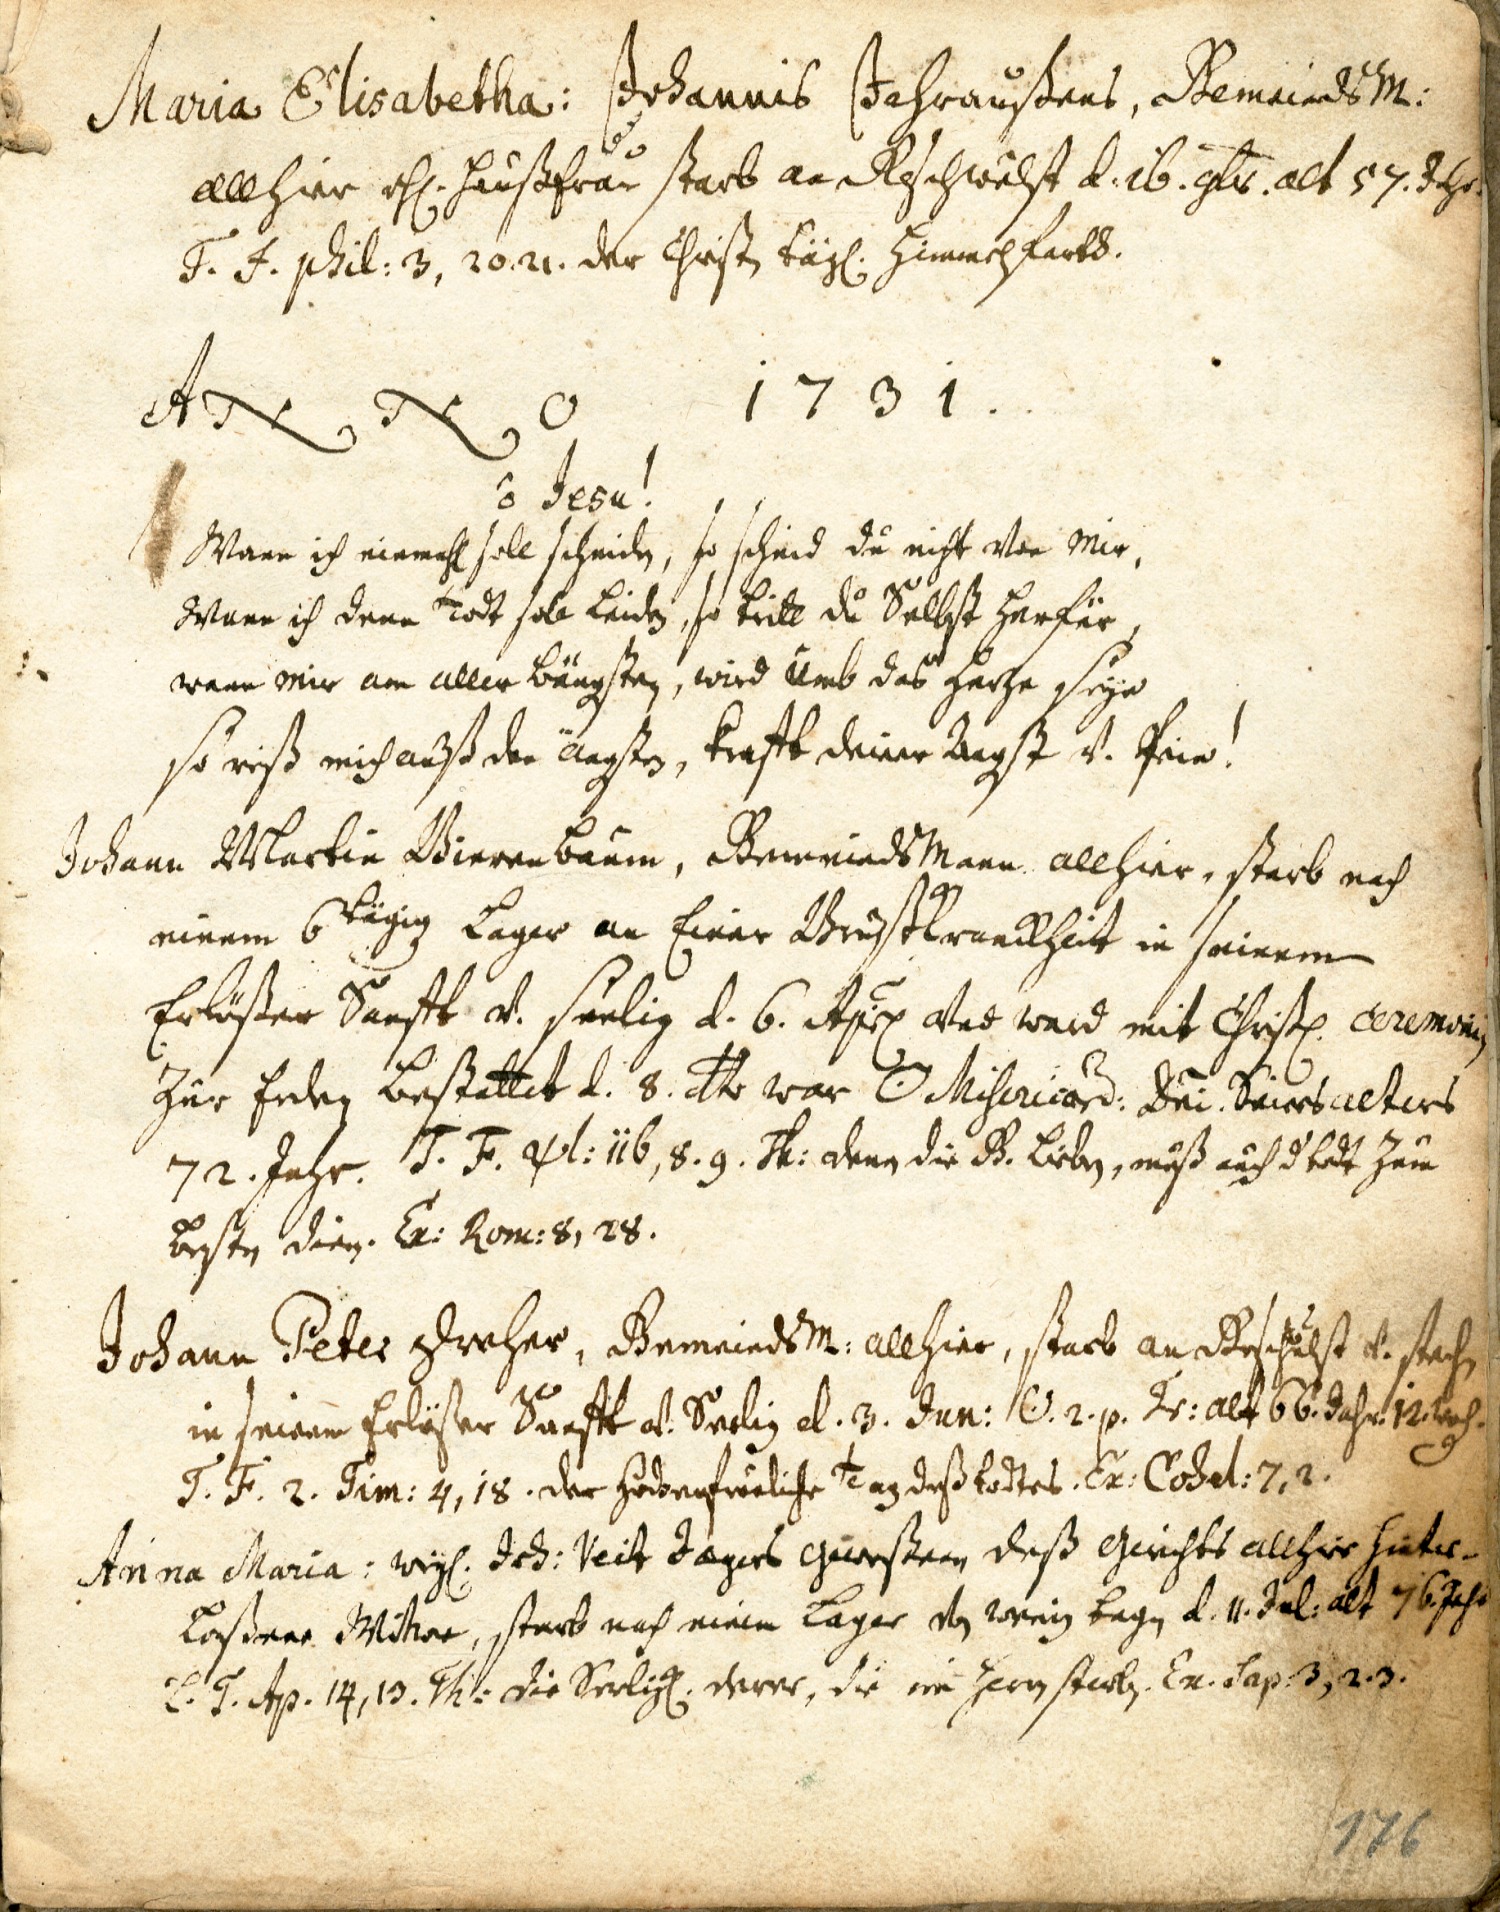 Maria Elisabetha: Johannis Jahraußens, GemeindsM:
allhier ehl. Haußfrau starb an Gschwulst d. 16. 9br. alt 57. Jahr.
T. F. phil: 3, 20. 21. der Christen tägl. Himmelfarth.
ANNO 1731.
ô Jesu!
Wann ich einmahl soll scheiden, so scheid du nicht von mir,
Wann ich denn Todt soll leiden, so tritt du Selbst herfür,
wann mir am aller bängsten, wird umb das Hertze seyn
so reiß mich auß den ängsten, krafft deiner Angst v. Pein!
Johann Martin Bierenbaum, GemeindsMann allhier, starb nach
einem 6 tägigen Lager an Einer Brustkranckheit in seinem
Erlößer Sanfft v. seelig d. 6. April und ward mit Christl. ceremonien
Zur Erden bestattet d. 8. dito war Misericord: Dni. Seines alters
72. Jahr. T. F. Ps: 116, 8. 9. Th: denen die G. lieben, muß auch d todt zum
besten dienen. Ex: Rom: 8, 28.
Johann Peter Dreher, GemeindsM: allhier, starb an Geschwulst v. stechen
in seinem Erlößer Sanfft v. Seelig d. 3. Jun: 2. p. Tr: alt 66. Jahr. 12. Woch.
T. F. 2. Tim: 4, 18. der hocherfreuliche Tag deß todtes. Ex: Cohel: 7, 2.
Anna Maria: weyl. Joh: Veit Jägers gewesenen deß Gerichts allhier hinter-
laßene Witwe, starb nach einem Lager von wenig tagen d. 11. Jul: alt 76 Jahr
L. T. Ap. 14, 13. Th: die Seeligk. derer, die im Herrn sterben. Ex. Sap: 3, 2. 3.
176